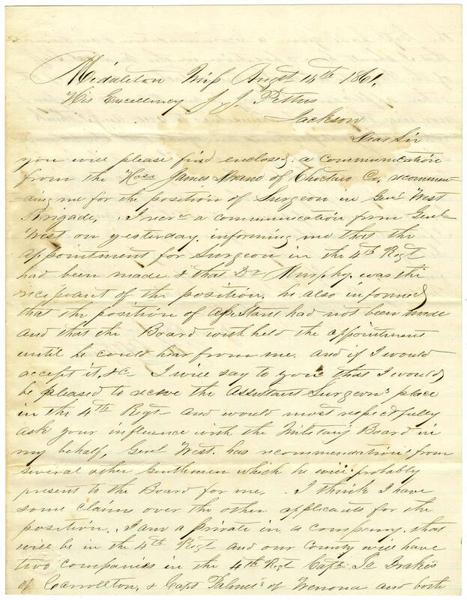 Middleton Miss Augst 14th 1861,
His Excellency J. J. Pettus
Jackson
Dear Sir
you will please find enclosed, a communication
from the Hon James Drane of Choctaw Co, recommen
ding me for the position of Surgeon in Genl West
Brigade, I recvd a communication from Genl
West on yesterday informing me that the
appointment for Surgeon in the 4th Regt
had been made & that Dr Murphy, was the
recipient of the position, he also informed
that the position of Assistant had not been made
and that the Board withheld the appointment
until he could hear from me, and if I would
accept it, &c I will say to you that I would
be pleased to receive the Assistant Surgeon's place
in the 4th Regt and would most respectfully
ask your influence with the Military Board in
my behalf, Genl West, has recommendations from
several other Gentlemen which he will probably
present to the Board for me, I think I have
some claims over the other applicants for the
position. I am a private in a company, that
will be in the 4th Regt and our County will have
two companies in the 4th Regt Capt Drakes
of Carrollton, & Capt Palmer's of Winona and both